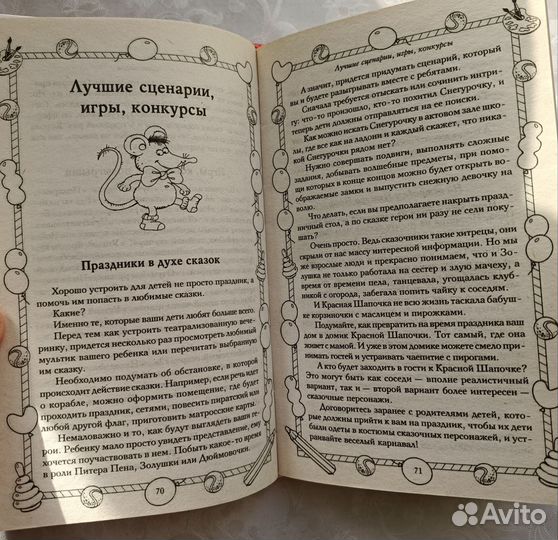 Лучшие сценарии,
игры, конкурсы
Праздники в духе сказок
Хорошо устроить для детей не просто праздник, а
помочь им попасть в любимые сказки.
Какие?
Именно те, которые ваши дети любят больше всего.
Перед тем как устроить театрализованную вече-
ринку, придется несколько раз просмотреть любимый
мультик вашего ребенка или перечитать выбранную
им сказку.
Необходимо подумать об обстановке, в которой
происходит действие сказки. Например, если речь идет
о корабле, можно оформить помещение, где будет
проходить праздник, сетями, повесить пиратский или
любой другой флаг, приготовить матросские карты.
Немаловажно и то, как будут выглядеть ваши ге-
рои. Ребенку мало просто увидеть представление, ему
хочется поучаствовать в нем. Побыть какое-то время
в роли Питера Пена, Золушки или Дюймовочки.
70
Лучшие сценарии, игры, конкурсы
А значит, придется придумать сценарий, который
вы и будете разыгрывать вместе с ребятами.
Сначала требуется отыскать или сочинить интри-
гу: что произошло, кто-то похитил Снегурочку, и
теперь дети должны отправляться на ее поиски.
Как можно искать Снегурочку в актовом зале шко-
лы, где все как на ладони и каждый скажет, что ника-
кой Снегурочки рядом нет?
Нужно совершать подвиги, выполнять сложные
задания, добывать волшебные предметы, при помо-
щи которых в конце концов можно будет открыть во-
ображаемые замки и выпустить снежную девочку на
волю.
Что делать, если вы предполагаете накрыть празд-
ничный стол, а по сказке герои ни разу не сели поку-
шать?
Очень просто. Ведь сказочники такие хитрецы, они
скрыли от нас массу интересной информации. Но мы
же взрослые люди и прекрасно понимаем, что и Зо-
лушка не только работала на сестер и злую мачеху, а
время от времени пела, танцевала, угощалась клуб-
никой с огорода, забегала попить чайку к соседям.
И Красная Шапочка не всю жизнь таскала бабуш-
ке корзиночки с маслицем и пирожками.
Подумайте, как превратить на время праздника ваш
дом в домик Красной Шапочки. Тот самый, где она
живет с мамой. И уже в этом домике можете смело прини-
мать гостей и устраивать чаепитие с пирогами.
А кто будет заходить в гости к Красной Шапочке?
Это могут быть как соседи — вполне реалистичный
вариант, так и — второй вариант более интересен —
сказочные персонажи.
Договоритесь заранее с родителями детей, кото-
рые должны прийти к вам на праздник, чтобы их дети
были одеты в костюмы сказочных персонажей, и уст-
раивайте веселый карнавал!
71
Avito